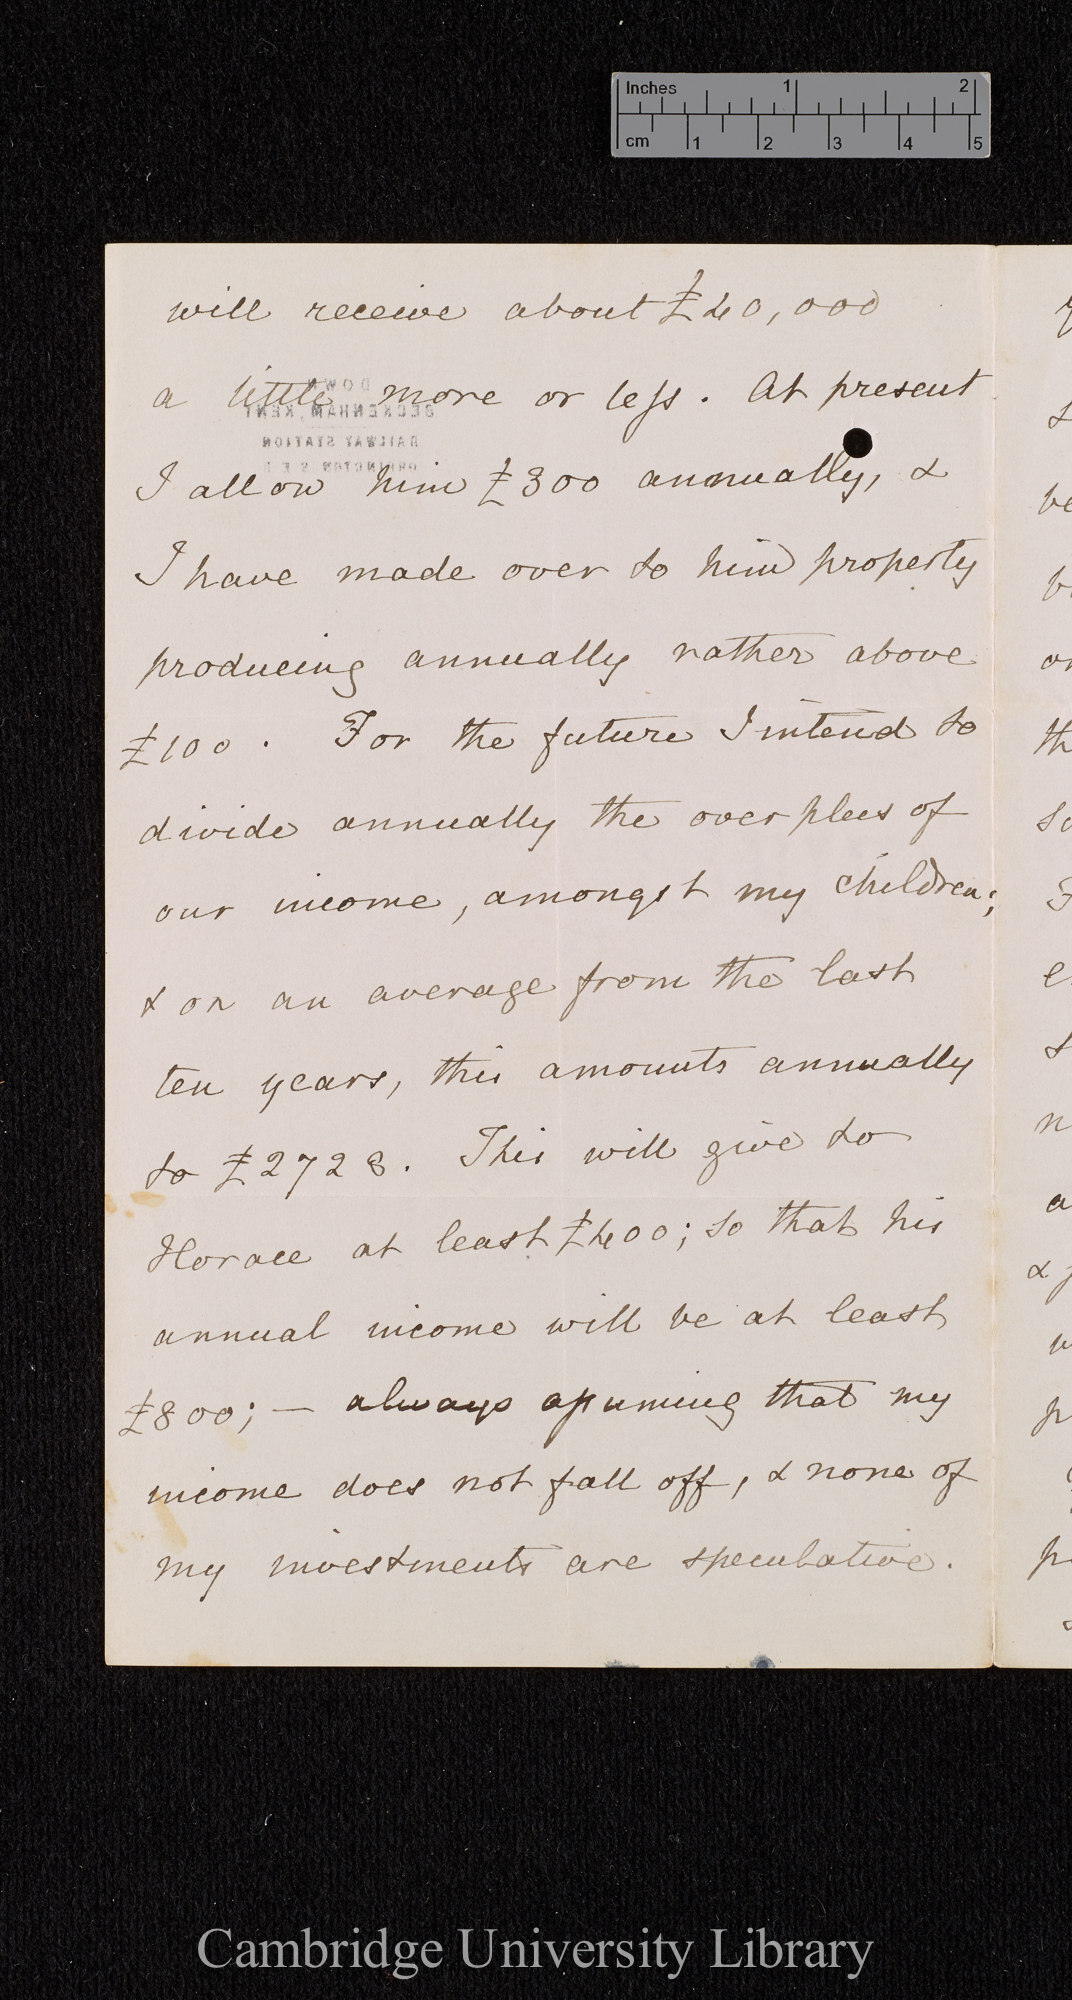 Inches 1 2
cm 1 2 3 4 5
will receive about £40,000
a little more or less. At present
DOWN,
BECKENHAM, KENT
RAILWAY STATION
ORPINGTON S.E.R.
I allow him £300 annually, &
I have made over to him property
producing annually rather above
£100. For the future I intend to
divide annually the overplus of
our income, amongst my children;
& on an average from the last
ten years, this amounts annually
to £2728. This will give to
Horace at least £400; so that his
annual income will be at least
£800; — always assuming that my
income does not fall off, & none of
my investments are speculative.
Cambridge University Library